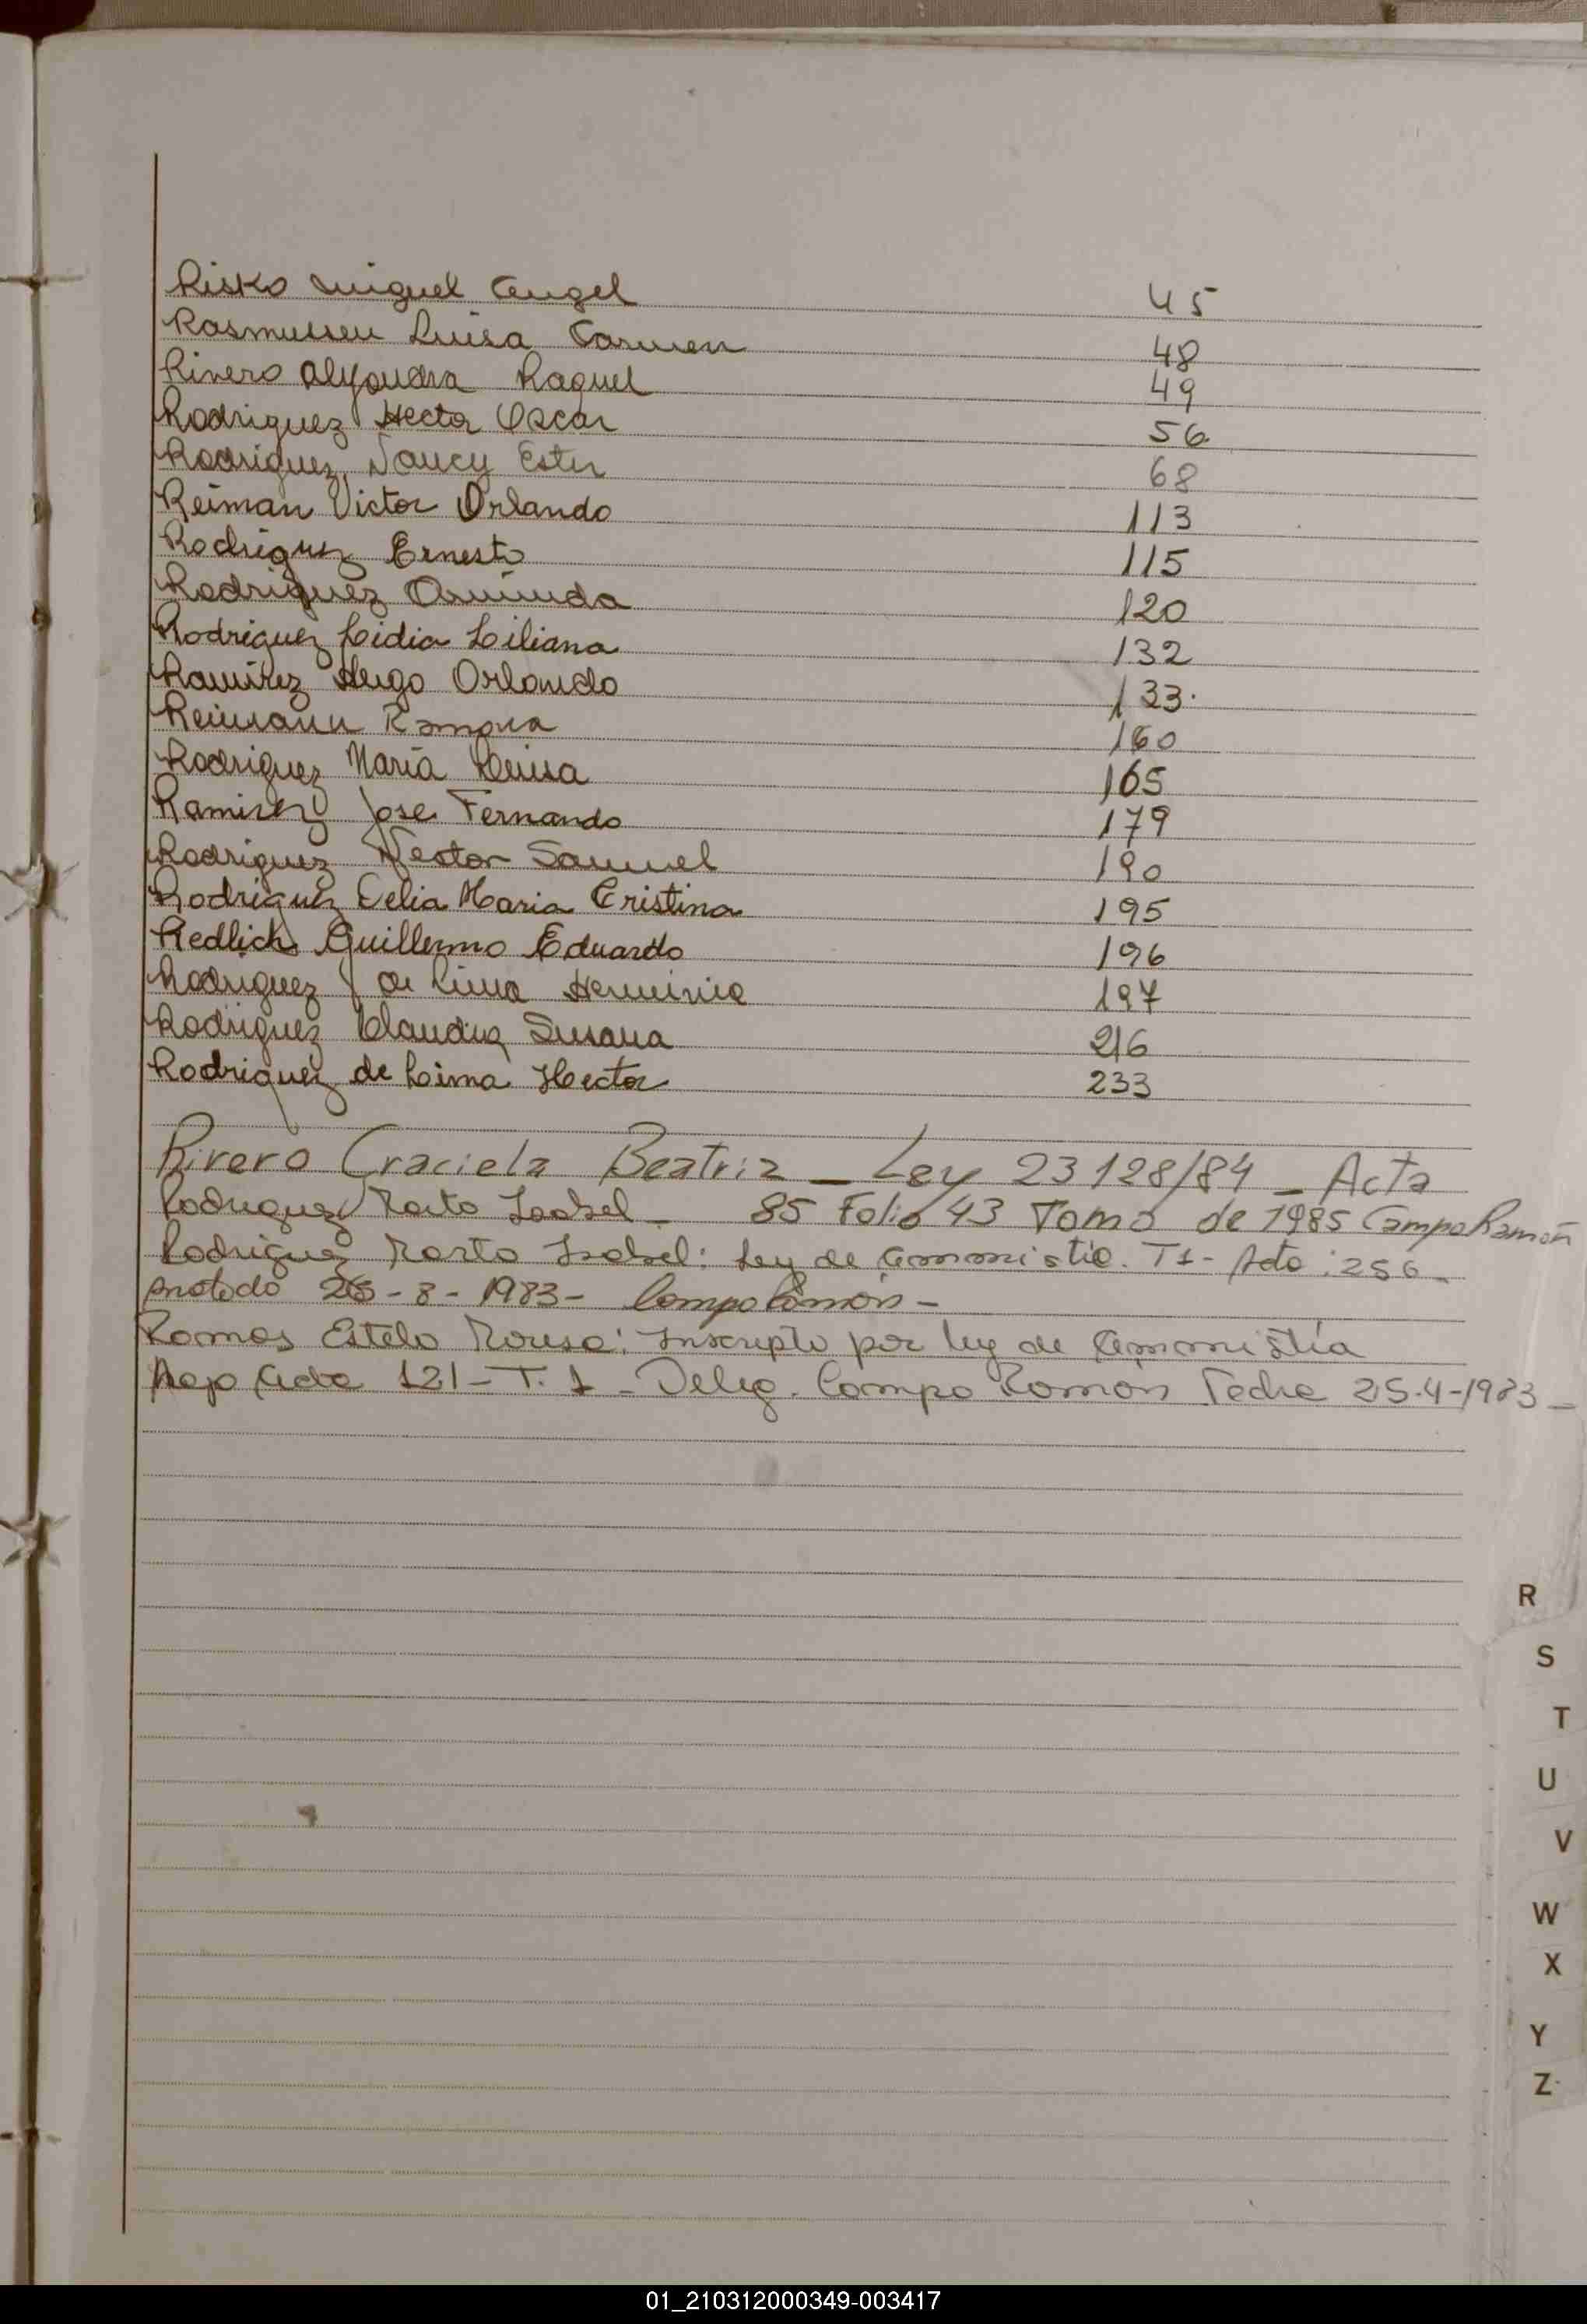 Risko Miguel Angel 45
Rasmussen Luisa Carmen 48
Rivero Alejandra Raquel 49
Rodriguez Hector Oscar 56
Rodriguez Nancy Ester 68
Reiman Victor Orlando 113
Rodriguez Ernesto 115
Rodriguez 120
Rodriguez Lidia Liliana 132
Ramirez Hugo Orlando 133
Reimann Ramona 160
Rodriguez María Luisa 165
Ramirez Jose Fernando 179
Rodriguez Nestor Samuel 190
Rodriguez Celia Maria Cristina 195
Redlich Guillermo Eduardo 196
Rodriguez de Lima Herminia 197
Rodriguez Claudia Susana 216
Rodriguez de Lima Hector 233
Rivero Graciela Beatriz - Ley 23128/84 - Acta
Rodriguez Marta Isabel - 85 Folio 43 Tomo de 1985 Campo Ramón
Rodriguez Marta Isabel: Ley de Ammistia. T1- Acta: 256-
anotado 26-8-1983- Campo Ramón-
Ramos Estela Teresa: Inscripta por ley de Ammistía
Bajo Acta 121 - T. 1 - Deleg. Campo Ramón Fecha 25-4-1983-
R
S
T
U
V
W
X
Y
Z
01_210312000349-003417